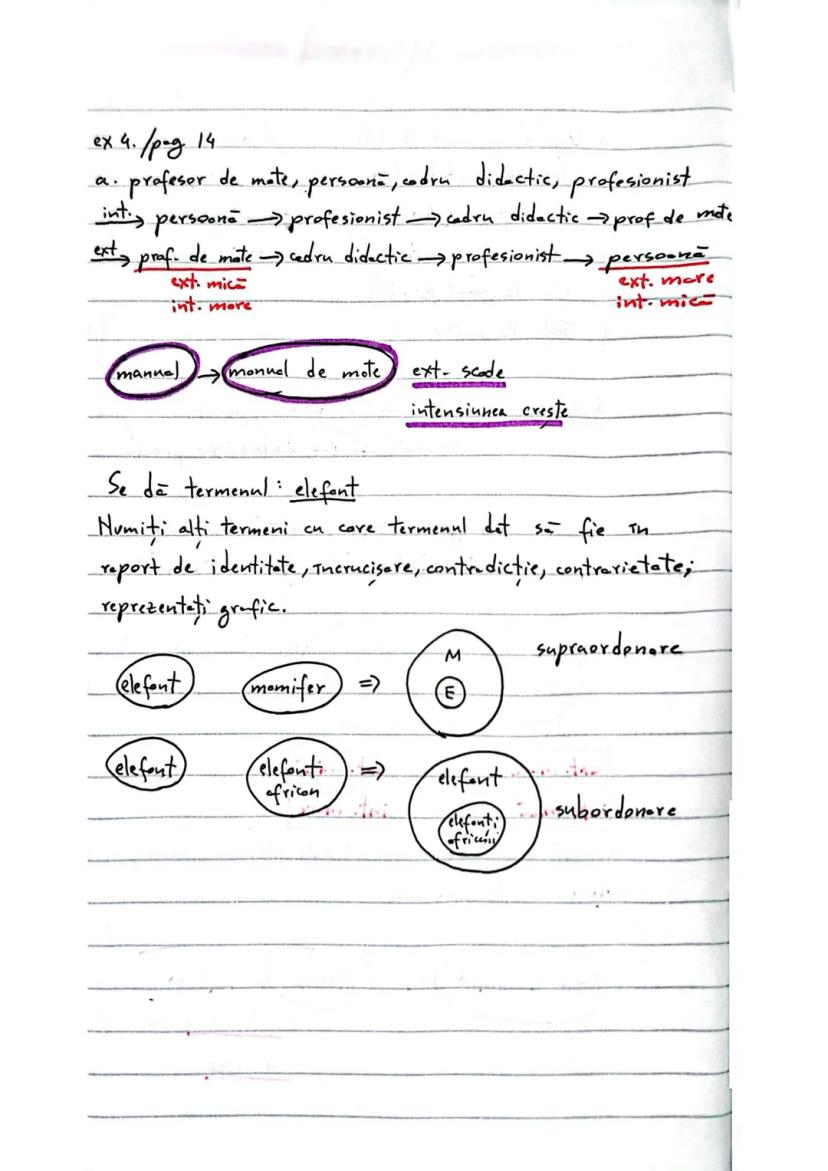 ex 4. /pag 14
a. profesor de mate, persoană, cadru didactic, profesionist
int. → persoană → profesionist → cadru didactic → prof de mate
ext → prof. de mate → cadru didactic → profesionist → persoană
ext. mică ext. mare
int. mare int. mică
manual → manual de mate ext. scade
intensiunea crește
Se dă termenul: elefant
Numiți alți termeni cu care termenul dat să fie în
raport de identitate, încrucișare, contradicție, contrarietate;
reprezentați grafic.
supraordonare
elefant mamifer => M E
elefant elefant african => elefant elefanți africani subordonare